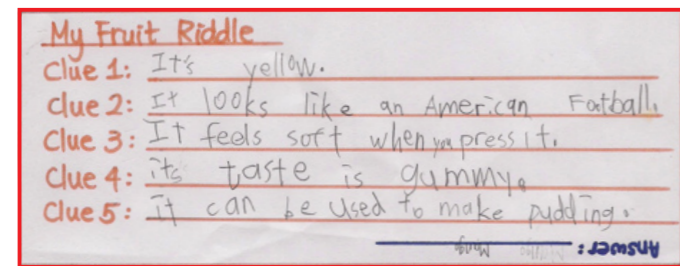 My Fruit Riddle
Clue 1: It's yellow.
Clue 2: It looks like an American Football.
Clue 3: It feels soft when you press it.
Clue 4: its taste is gummy.
Clue 5: it can be used to make pudding.
Answer: Mango